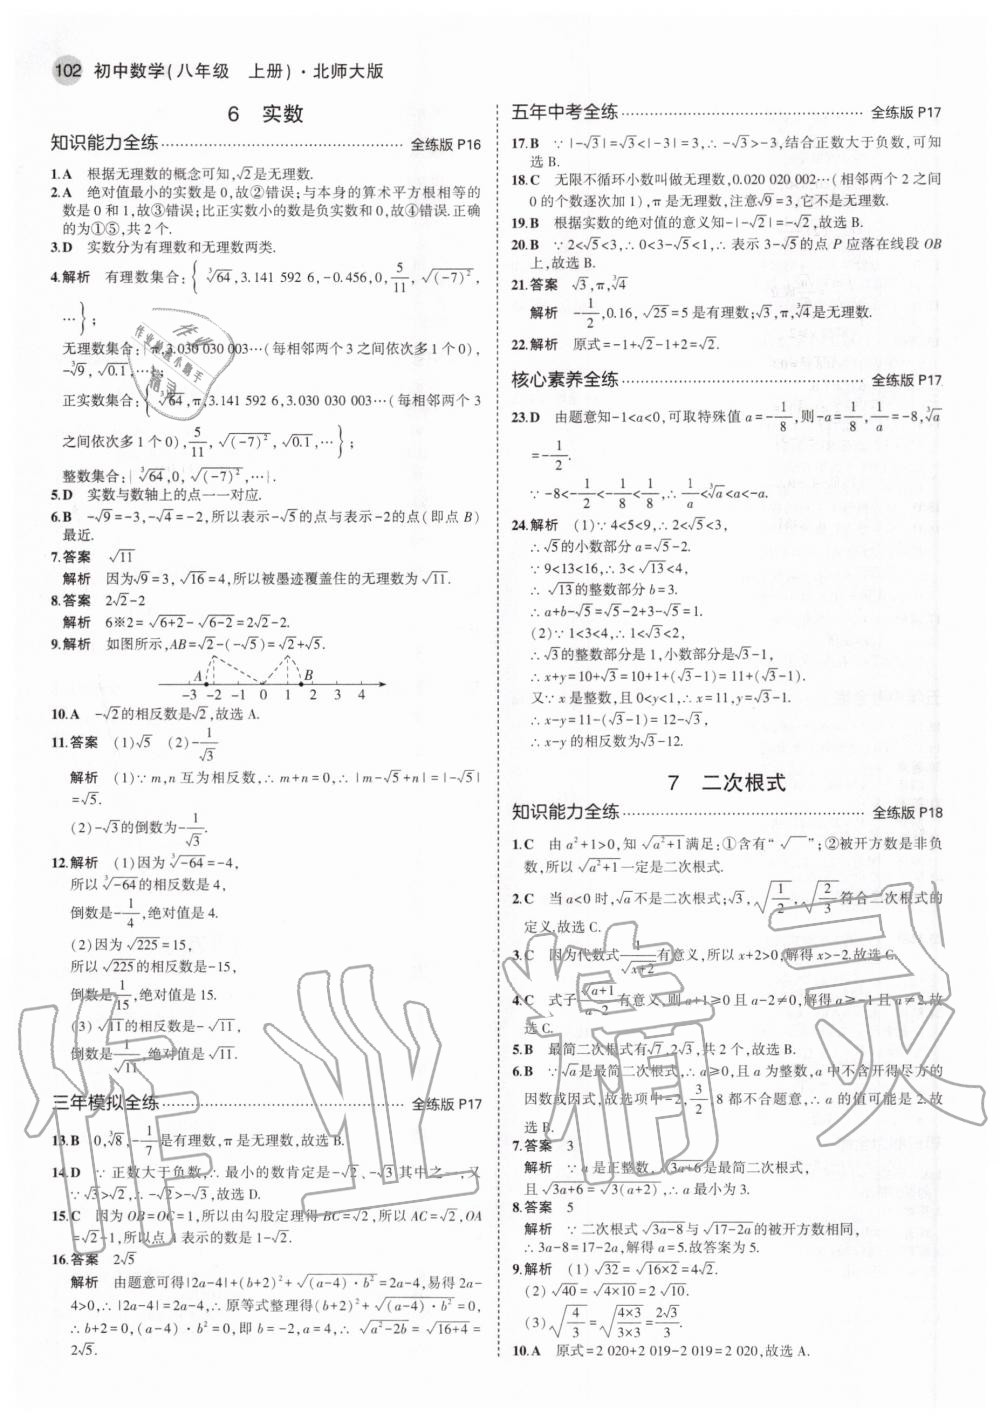 102 初中数学(八年级 上册)·北师大版
6 实数
知识能力全练 全练版 P16
1.A 根据无理数的概念可知,√2是无理数.
2.A 绝对值最小的实数是 0,故②错误;与本身的算术平方根相等的
数是 0 和 1,故③错误;比正实数小的数是负实数和 0,故④错误.正确
的为①⑤,共 2 个.
3.D 实数分为有理数和无理数两类.
4.解析 有理数集合:{ ∛64,3.141 592 6,-0.456,0,5/11,√(-7)²,
…};
无理数集合:{ π,3.030 030 003…(每相邻两个 3 之间依次多 1 个 0),
-∛9,√0.1,…};
正实数集合:{ ∛64,π,3.141 592 6,3.030 030 003…(每相邻两个 3
之间依次多 1 个 0),5/11,√(-7)²,√0.1,…};
整数集合:{ ∛64,0,√(-7)²,…}.
5.D 实数与数轴上的点一一对应.
6.B -√9=-3,-√4=-2,所以表示-√5的点与表示-2的点(即点 B)
最近.
7.答案 √11
解析 因为√9=3,√16=4,所以被墨迹覆盖住的无理数为√11.
8.答案 2√2-2
解析 6※2=√(6+2)-√(6-2)=2√2-2.
9.解析 如图所示,AB=√2-(-√5)=√2+√5.
A B
-3 -2 -1 0 1 2 3 4
10.A -√2的相反数是√2,故选 A.
11.答案 (1)√5 (2)-1/√3
解析 (1)∵ m,n 互为相反数,∴ m+n=0,∴ |m-√5+n|=|-√5|
=√5.
(2)-√3的倒数为-1/√3.
12.解析 (1)因为∛-64=-4,
所以∛-64的相反数是 4,
倒数是-1/4,绝对值是 4.
(2)因为√225=15,
所以√225的相反数是-15,
倒数是1/15,绝对值是 15.
(3)√11的相反数是-√11,
倒数是1/√11,绝对值是√11.
三年模拟全练 全练版 P17
13.B 0,∛8,-1/7是有理数,π 是无理数,故选 B.
14.D ∵ 正数大于负数,∴ 最小的数肯定是-√2、-√3其中之一,又
∵ √3>√2,∴ -√2>-√3,故选 D.
15.C 因为 OB=OC=1,所以由勾股定理得 BC=√2,所以 AC=√2,OA
=√2-1,所以点 A 表示的数是 1-√2.
16.答案 2√5
解析 由题意可得|2a-4|+(b+2)²+√((a-4)·b²)=2a-4,易得 2a-
4>0,∴ |2a-4|=2a-4,∴ 原等式整理得(b+2)²+√((a-4)·b²)=0,
∴ b+2=0,(a-4)·b²=0,即 b=-2,a=4,∴ √(a²-2b)=√(16+4)=
2√5.
五年中考全练 全练版 P17
17.B ∵ |-√3|=√3<|-3|=3,∴ -√3>-3,结合正数大于负数,可知
选 B.
18.C 无限不循环小数叫做无理数,0.020 020 002…(相邻两个 2 之间
0 的个数逐次加 1),π 是无理数,注意√9=3,它不是无理数.
19.B 根据实数的绝对值的意义知-|-√2|=-√2,故选 B.
20.B ∵ 2<√5<3,∴ 0<3-√5<1,∴ 表示 3-√5的点 P 应落在线段 OB
上,故选 B.
21.答案 √3,π,∛4
解析 -1/2,0.16,√25=5 是有理数;√3,π,∛4是无理数.
22.解析 原式=-1+√2-1+2=√2.
核心素养全练 全练版 P17
23.D 由题意知-1<a<0,可取特殊值 a=-1/8,则-a=1/8,1/a=-8,∛a
=-1/2.
∵ -8<-1/2<-1/8<1/8,∴ 1/a<∛a<a<-a.
24.解析 (1)∵ 4<5<9,∴ 2<√5<3,
∴ √5的小数部分 a=√5-2.
∵ 9<13<16,∴ 3<√13<4,
∴ √13的整数部分 b=3.
∴ a+b-√5=√5-2+3-√5=1.
(2)∵ 1<3<4,∴ 1<√3<2,
∴ √3的整数部分是 1,小数部分是√3-1,
∴ x+y=10+√3=10+1+(√3-1)=11+(√3-1).
又∵ x 是整数,且 0<y<1,∴ x=11,y=√3-1.
∴ x-y=11-(√3-1)=12-√3,
∴ x-y 的相反数为√3-12.
7 二次根式
知识能力全练 全练版 P18
1.C 由 a²+1>0,知√(a²+1)满足:①含有“√ ”;②被开方数是非负
数,所以√(a²+1)一定是二次根式.
2.C 当 a<0 时,√a不是二次根式;√3,√(1/2),√(2/3)符合二次根式的
定义,故选 C.
3.C 因为代数式1/√(x+2)有意义,所以 x+2>0,解得 x>-2.故选 C.
4.C 式子√(a+1)/(a-2)有意义,则 a+1≥0 且 a-2≠0,解得 a≥-1 且 a≠2.故
选 C.
5.B 最简二次根式有√7,2√3,共 2 个,故选 B.
6.B ∵ √a是最简二次根式,∴ a≥0,且 a 为整数,a 中不含开得尽方的
因数或因式,故选项中-2,3/2,8 都不合题意,∴ a 的值可能是 2.故
选 B.
7.答案 3
解析 ∵ a 是正整数,√(3a+6)是最简二次根式,
且√(3a+6)=√(3(a+2)),∴ a 最小为 3.
8.答案 5
解析 ∵ 二次根式√(3a-8)与√(17-2a)的被开方数相同,
∴ 3a-8=17-2a,解得 a=5.故答案为 5.
9.解析 (1)√32=√(16×2)=4√2.
(2)√40=√(4×10)=2√10.
(3)√(4/3)=√((4×3)/(3×3))=2√3/3.
10.A 原式=2 020+2 019-2 019=2 020,故选 A.
作业精灵